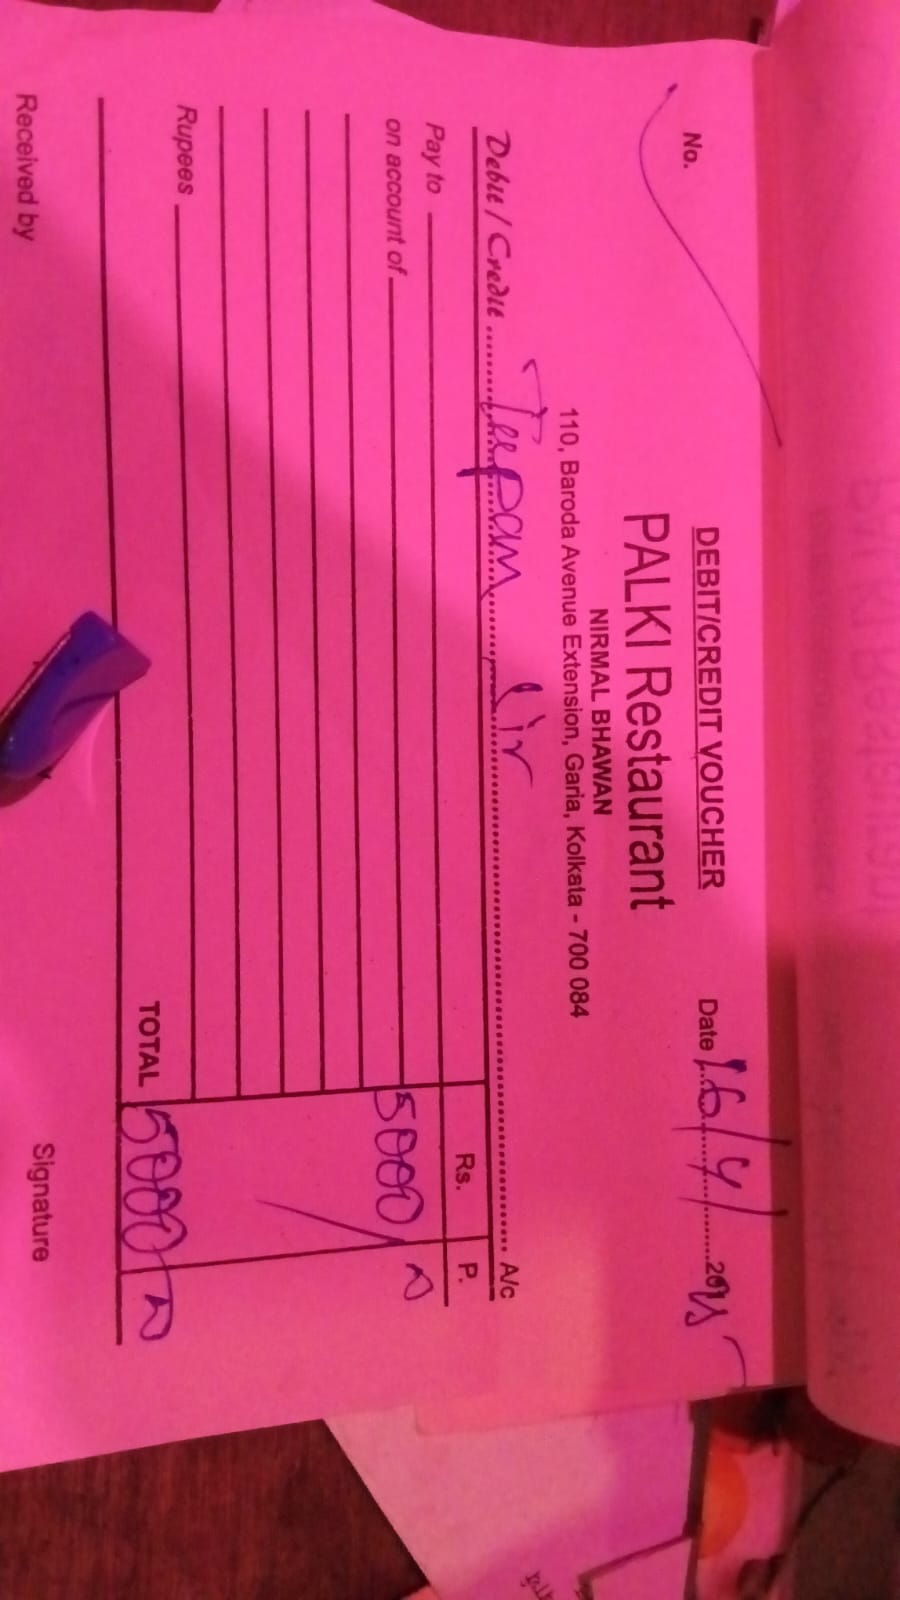 DEBIT/CREDIT VOUCHER
No.
Date 16/4/2025
PALKI Restaurant
NIRMAL BHAWAN
110, Baroda Avenue Extension, Garia, Kolkata - 700 084
Debit / Credit Sir A/c
Pay to
Rs. P.
on account of 5000
Rupees
TOTAL 5000
Received by
Signature